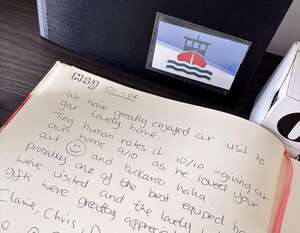 May 01-04
We have greatly enjoyed our visit to
your lovely home.
Tiny human rates it 10/10 - giving our
own home 0/10 as he loved your
art ☺ and haha.
probably one of the best equiped ho
we've visited and the lovely
gifts were greatly apprecia
Claire, Chris,